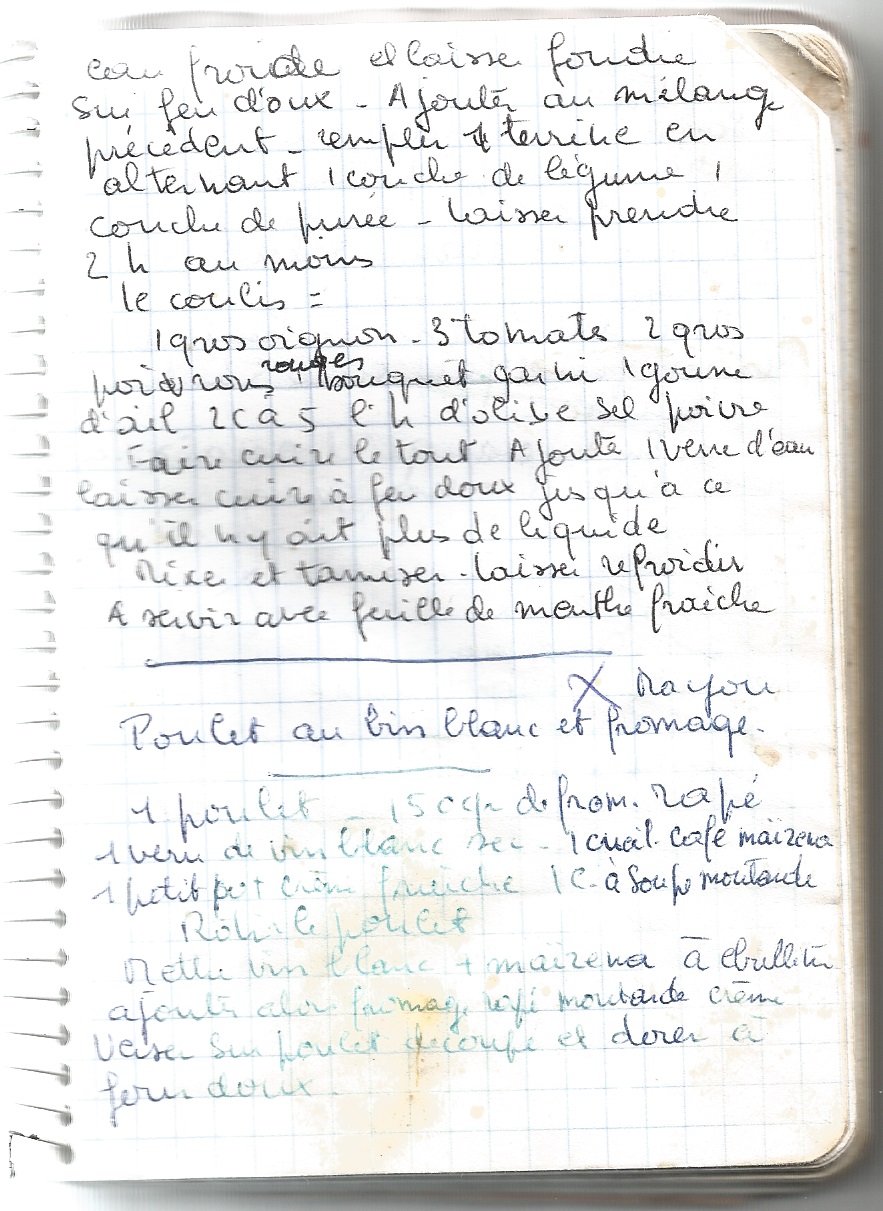 eau froide et laisse fondre
sur feu d'oux - Ajouter au mélange
précédent - remplir terrine en
alternant 1 couche de légume 1
couche de purée - laisser prendre
2 h au moins
le coulis =
1 gros oignon - 3 tomates 2 gros
poivrons rouges 1 bouquet garni 1 gousse
d'ail 2 C à S l'h d'olive sel poivre
Faire cuire le tout Ajouté 1 verre d'eau
laisser cuire à feu doux jusqu'à ce
qu'il n'y ait plus de liquide
Mixer et tamiser - laisser refroidir
A servir avec feuille de menthe fraîche
X
Poulet au vin blanc et fromage.
1 poulet - 150 gr de from. rapé
1 verre de vin blanc sec - 1 cuil. café maïzena
1 petit pot crème fraîche 1 C. à Soupe moutarde
Rôtir le poulet
Mettre vin blanc + maïzena à ébullition
ajouter alors fromage rapé moutarde crème
Verser sur poulet découpé et dorer à
four doux.